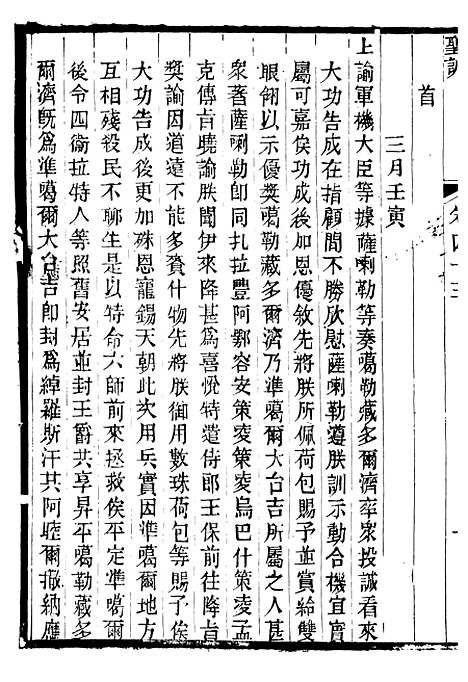 聖訓
首
三月壬寅
上諭軍機大臣等據薩喇勒等奏噶勒藏多爾濟率眾投誠看來
大功告成在指顧間不勝欣慰薩喇勒遵朕訓示動合機宜實
屬可嘉俟功成後加恩優敘先將朕所佩荷包賜予並賞給雙
眼翎以示優獎噶勒藏多爾濟乃準噶爾大台吉所屬之人甚
眾著薩喇勒即同扎拉豐阿鄂容安策凌策凌烏巴什策凌孟
克傳旨曉諭朕聞伊來降甚為喜悅特遣侍郎王保前往降旨
獎諭因道遠不能多賫什物先將朕御用數珠荷包等賜予俟
大功告成後更加殊恩寵錫天朝此次用兵實因準噶爾地方
互相殘殺民不聊生是以特命六師前來拯救俟平定準噶爾
後令四衛拉特人等照舊安居並封王爵共享昇平噶勒藏多
爾濟既為準噶爾大台吉即封為綽羅斯汗其阿睦爾撒納應